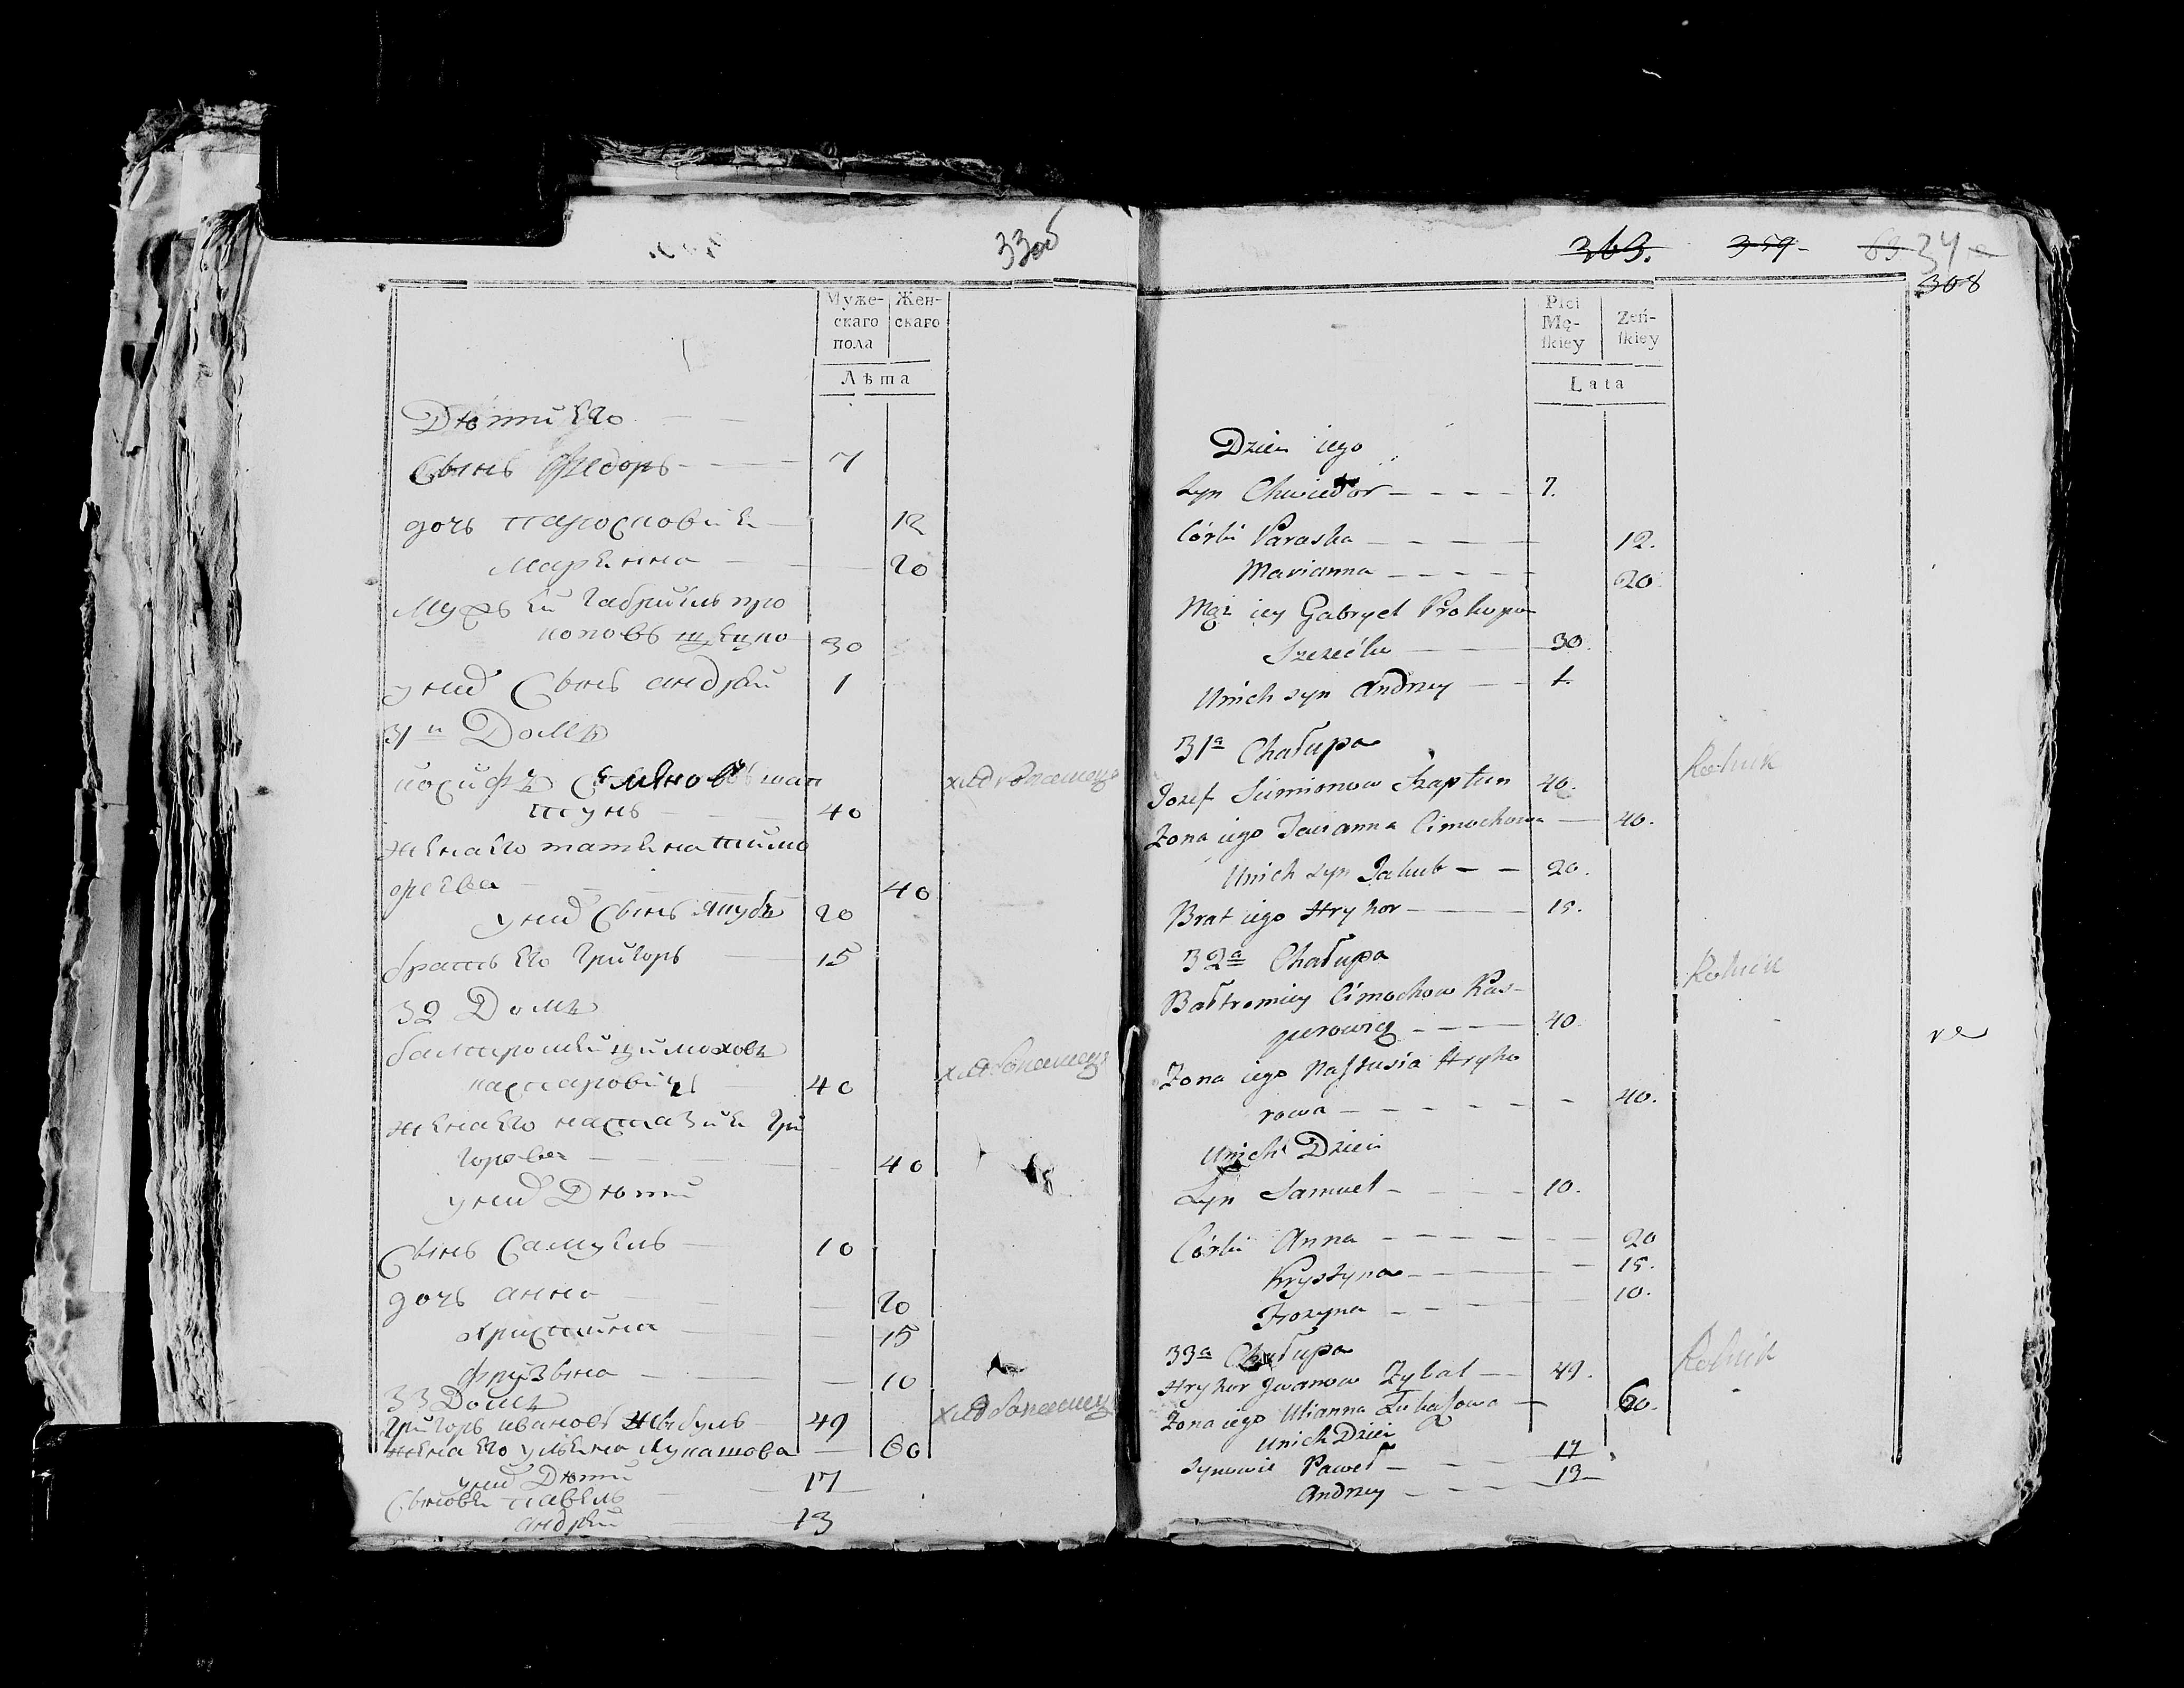 33об
Муже-
скаго
пола
Жен-
скаго
Лѣта
Дѣти Его
Сынъ Федоръ 7
дочь 12
Марянна 20
Мужъ Ей Габріель про
коповъ 30
у нихъ Сынъ андрей 1
31й Домъ
іосифъ Семяновъ шап
тунъ 40
жена Его татяна тимо
40
у нихъ Сынъ якубъ 20
братъ Его Григоръ 15
32 Домъ
балтромей цимоховъ
каспаровичъ 40
жена Его настазия Гри
горова 40
у нихъ Дѣти
Сынъ Самуель 10
дочь анна 20
христина 15
фрузына 10
33 Домъ
Григоръ ивановъ 49
жена Его уляна лукашова 60
у нихъ Дѣти
Сыновя павелъ 17
андрей 13
363. 359 34
308
Plci
Mę-
skiey
Zeń-
skiey
Lata
Dzieci iego
Syn Chwiedor 7.
Córki Paraska 12.
Marianna 20
Mąż iey Gabryel Prokopow
30.
Unich syn Andrzey 1.
31a Chałupa
Rolnik
Jozef Siemionow Szaptun 40.
Zona iego Tacianna Cimochowa 40.
Unich syn Jakub 20.
Brat iego Hryhor 15.
32a Chałupa
Rolnik
Bałtromiey Cimochow Kas-
perowicz 40
Zona iego Nastusia Hryho
rowa 40.
Unich Dzieci
Syn Samuel 10.
Córki Anna 20
Krystyna 15.
Frozyna 10.
33a Chałupa
Rolnik
Hryhor Jwanow Zybal 49.
Zona iego Ulianna Łukaszowa 60.
Unich Dzieci
Synowie Paweł 17
Andrzey 13